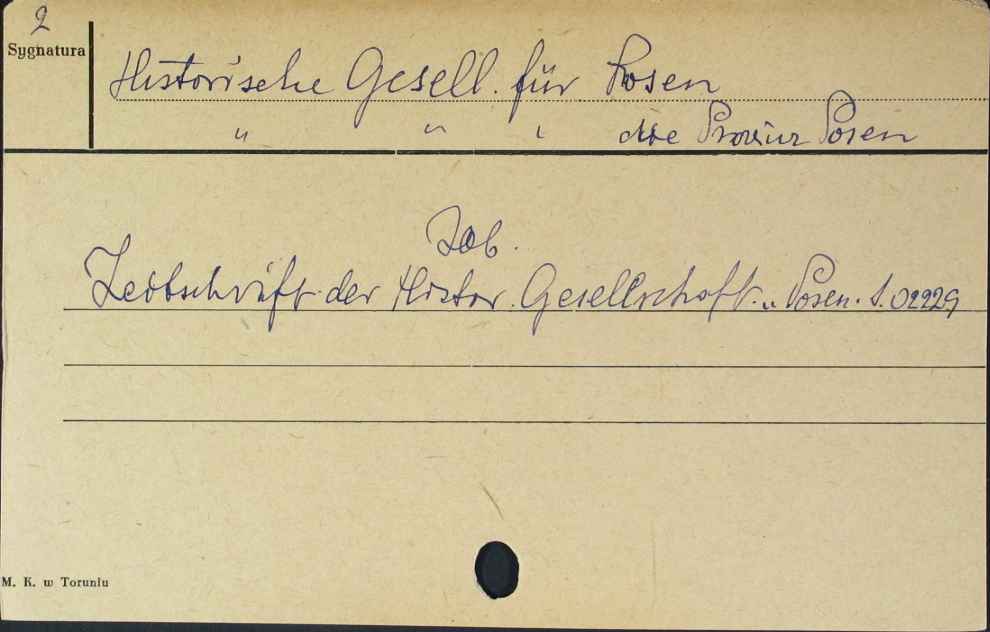 2
Sygnatura
Historische Gesell. für Posen
" " " die Provinz Posen
Zob.
Zeitschrift der Histor. Gesellschaft.. Posen. S. 02229
M. K. w Toruniu